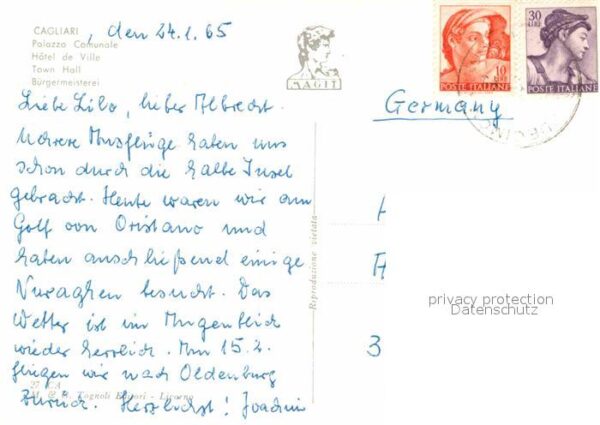 CAGLIARI , den 24.1.65
Palazzo Comunale
Hôtel de Ville
Town Hall
Bürgermeisterei
MAGIT
10 LIRE
POSTE ITALIANE
30 LIRE
POSTE ITALIANE
Germany
Liebe Lilo, lieber Albrecht.
Unsere Ausflüge haben uns
schon durch die halbe Insel
gebracht. Heute waren wir am
Golf von Oristano und
haben anschließend einige
Nuraghen besucht. Das
Wetter ist im Augenblick
wieder herrlich. Am 15.2.
fliegen wir nach Oldenburg
zurück. Herzlichst! Joachim
27 CA
Tognoli Editori - Livorno
Riproduzione vietata
A
3
privacy protection
Datenschutz